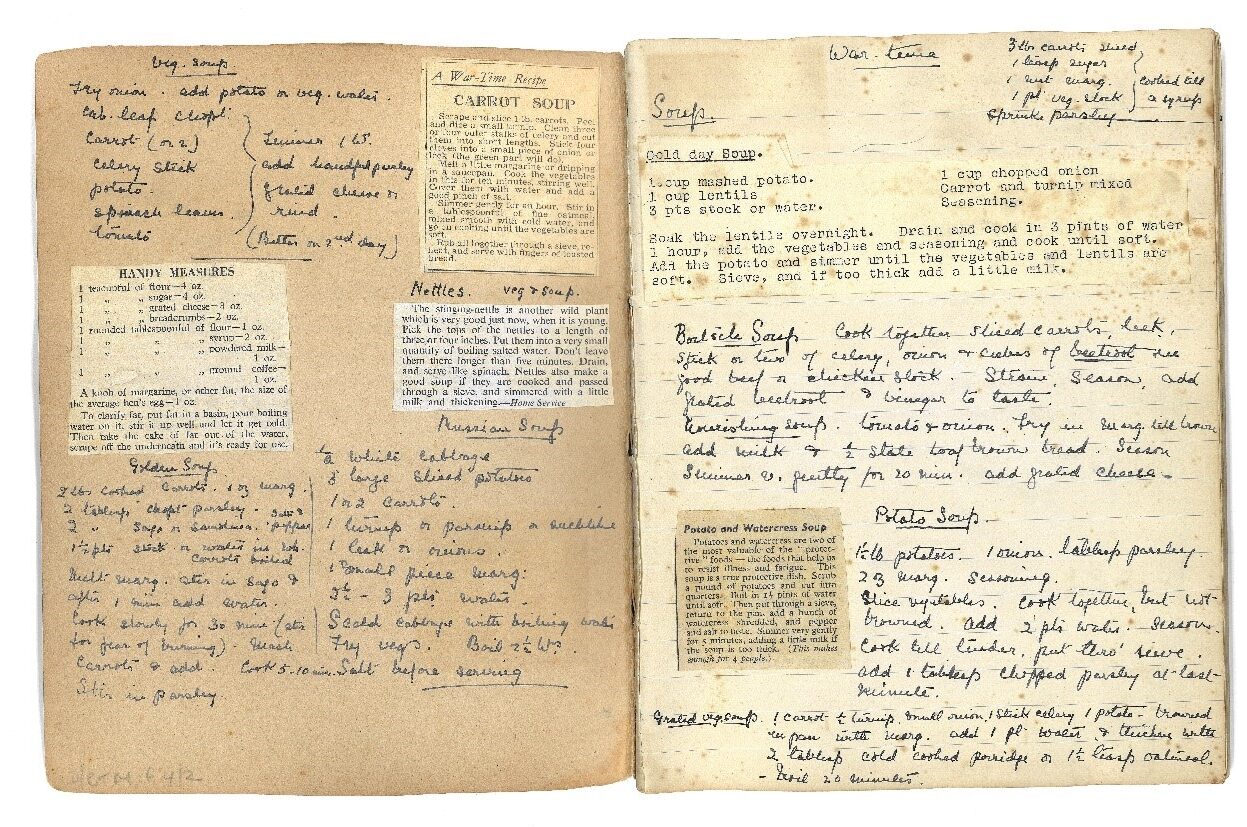 Veg. Soup
Fry onion. add potato or veg. water.
Cab. leaf chopt
Carrot (or 2)
Celery Stick
potato
spinach leaves.
tomato
Simmer 1 hr.
add handful parsley
Grated cheese or
rind.
(Better on 2nd day)
HANDY MEASURES
1 teacupful of flour—4 oz.
1 „ „ sugar—4 oz.
1 „ „ grated cheese—3 oz.
1 „ „ breadcrumbs—2 oz.
1 rounded tablespoonful of flour—1 oz.
1 „ „ syrup—2 oz.
1 „ „ powdered milk—
1 oz.
1 „ „ ground coffee—
1 oz.
A knob of margarine, or other fat, the size of
the average hen's egg—1 oz.
To clarify fat, put fat in a basin, pour boiling
water on it, stir it up well, and let it get cold.
Then take the cake of fat out of the water,
scrape off the underneath and it's ready for use.
Golden Soup
2 lbs cooked Carrots. 1 oz marg.
2 tablesp chopt parsley. Salt &
2 „ Sago or Semolina. pepper
1½ pts stock or water in wh.
Carrots boiled
Melt marg. stir in Sago &
after 1 min add water.
Cook slowly for 30 mins (stir
for fear of burning). Mash
Carrots & add. Cook 5-10 min.
Stir in parsley
A War-Time Recipe
CARROT SOUP
Scrape and slice 1 lb. carrots. Peel
and dice a small turnip. Clean three
or four outer stalks of celery and cut
them into short lengths. Stick four
cloves into a small piece of onion or
leek (the green part will do).
Melt a little margarine or dripping
in a saucepan. Cook the vegetables
in this for ten minutes, stirring well.
Cover them with water and add a
good pinch of salt.
Simmer gently for an hour. Stir in
a tablespoonful of fine oatmeal,
mixed smooth with cold water, and
go on cooking until the vegetables are
soft.
Rub all together through a sieve, re-
heat, and serve with fingers of toasted
bread.
Nettles. veg & soup.
The stinging-nettle is another wild plant
which is very good just now, when it is young.
Pick the tops of the nettles to a length of
three or four inches. Put them into a very small
quantity of boiling salted water. Don't leave
them there longer than five minutes. Drain,
and serve like spinach. Nettles also make a
good soup if they are cooked and passed
through a sieve, and simmered with a little
milk and thickening.—Home Service
Russian Soup
½ White Cabbage
3 large Sliced potatoes
1 or 2 Carrots.
1 turnip or parsnip
1 leek or onions.
1 small piece marg:
2½ - 3 pts water.
Scald cabbage with boiling water
Fry vegs. Boil 2½ hrs.
Salt before serving
War. time
3 lbs carrots sliced
1 teasp sugar
1 nut marg.
1 pt veg. stock
cooked till
a syrup
Sprinkle parsley
Soups.
Cold day Soup.
1 cup mashed potato.
1 cup lentils
3 pts stock or water.
1 cup chopped onion
Carrot and turnip mixed
Seasoning.
Soak the lentils overnight. Drain and cook in 3 pints of water
1 hour, add the vegetables and seasoning and cook until soft.
Add the potato and simmer until the vegetables and lentils are
soft. Sieve, and if too thick add a little milk.
Soup Cook together sliced carrots, leek,
stick or two of celery, onion & cubes of beetroot in
good beef or chicken stock - Strain, Season, add
grated beetroot & vinegar to taste.
Nourishing Soup. tomato & onion. Fry in marg till brown
add milk & ½ stale loaf brown bread. Season
Simmer v. gently for 20 min. add grated cheese -
Potato and Watercress Soup
Potatoes and watercress are two of
the most valuable of the "protec-
tive" foods—the foods that help us
to resist illness and fatigue. This
soup is a true protective dish. Scrub
a pound of potatoes and cut into
quarters. Boil in 1½ pints of water
until soft. Then put through a sieve,
return to the pan, add a bunch of
watercress shredded, and pepper
and salt to taste. Simmer very gently
for 5 minutes, adding a little milk if
the soup is too thick. (This makes
enough for 4 people.)
Potato Soup.
1½ lb potatoes - 1 onion. tablesp parsley.
2 oz marg. Seasoning.
Slice vegetables. Cook together, but not
browned. add 2 pts water - Season.
Cook till tender, put thro' sieve.
add 1 tablesp chopped parsley at last
minute.
Grated veg. soup. 1 carrot ½ turnip, small onion, 1 stick celery 1 potato - browned
in pan with marg. add 1 pt water & thicken with
2 tablesp cold cooked porridge or 1½ teasp oatmeal.
- Boil 20 minutes.